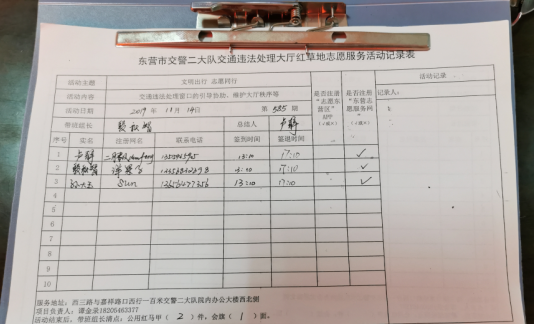 东营市交警二大队交通违法处理大厅红草地志愿服务活动记录表
活动主题 文明出行 志愿同行 活动记录
活动内容 交通违法处理窗口的引导协助、维护大厅秩序等 记录人:
活动日期 2019年11月14日 第585期
是否注册“志愿东营区”APP(√或×)
是否注册“志愿东营志愿服务网”(√或×)
带班组长 总结人 卢静
序号 实名 注册网名 联系电话 签到时间 签退时间
1 卢静 13:10 17:10 √
2 17:10 √
3 Sun 13:10 17:10 √
4
5
6
7
8
9
10
服务地址:西三路与嘉祥路口西行一百米交警二大队院内办公大楼西北侧
项目负责人:谭金录18205463377
活动结束后,带班组长清点:公用红马甲(2)件,会旗(1)面。